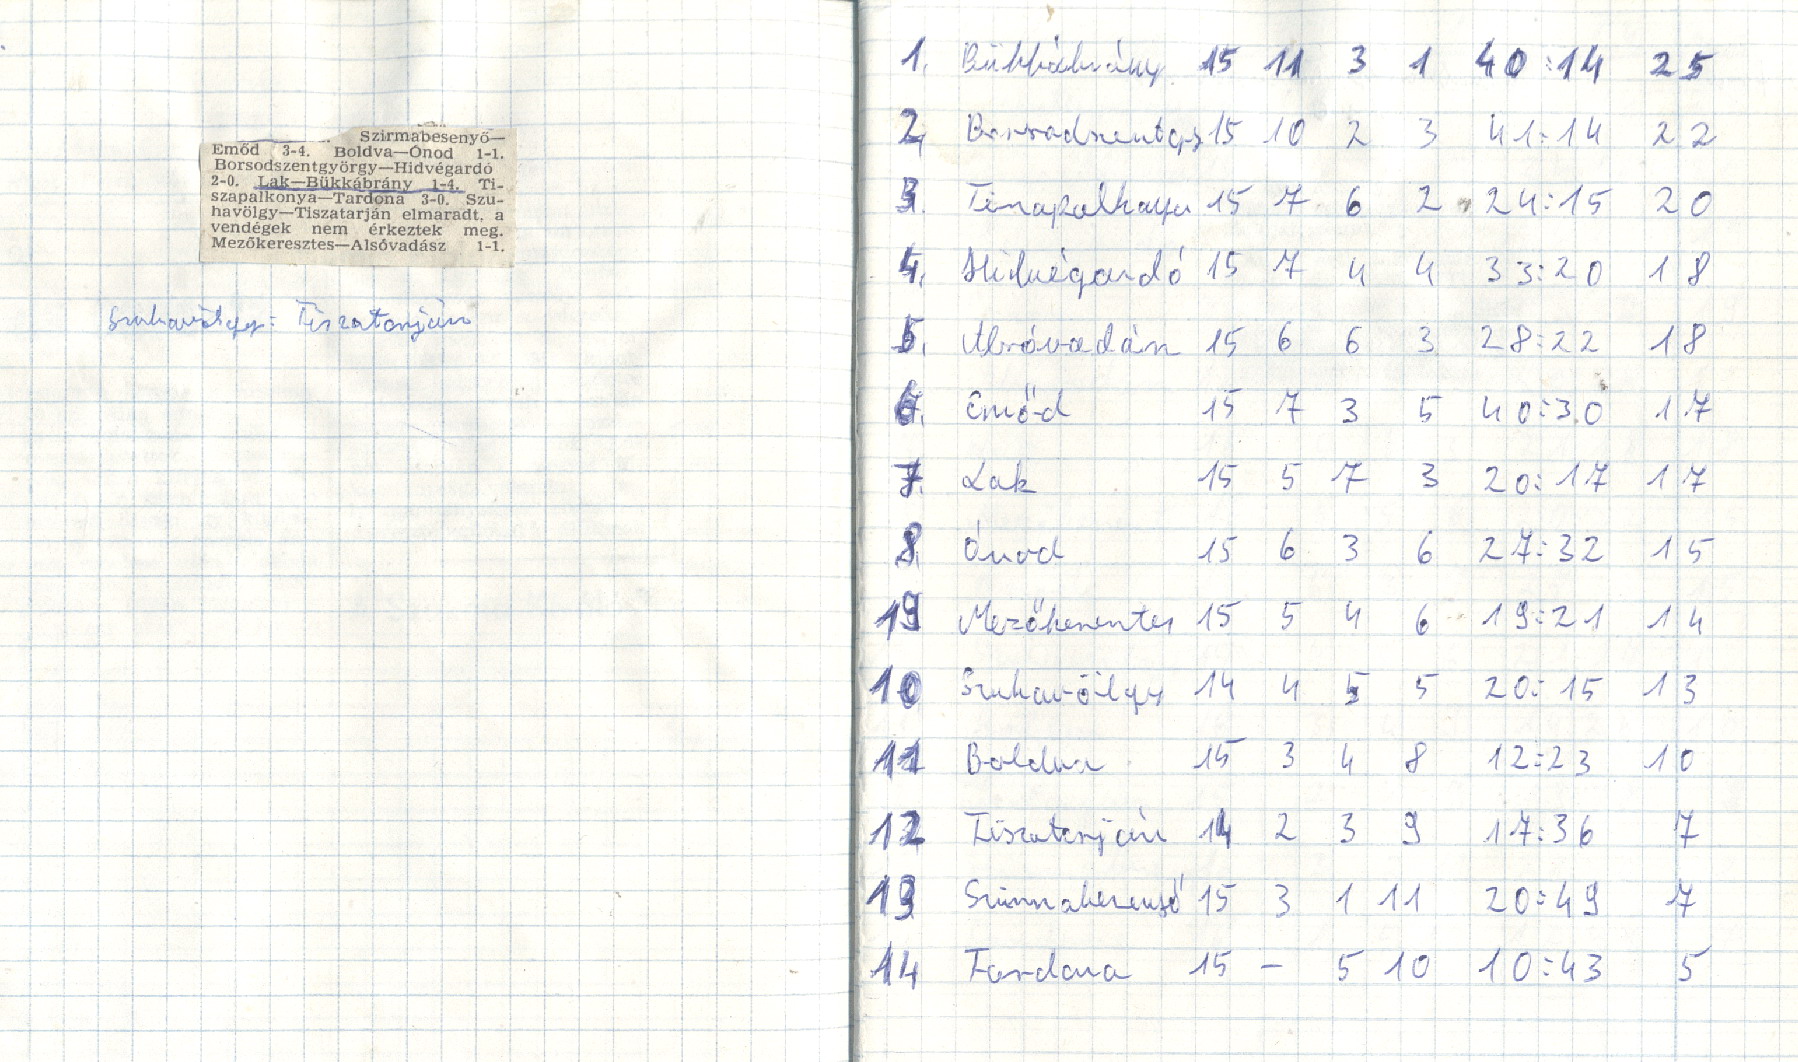 Szirmabesenyő—
Emőd 3-4. Boldva—Ónod 1-1.
Borsodszentgyörgy—Hidvégardó
2-0. Lak—Bükkábrány 1-4. Ti-
szapalkonya—Tardona 3-0. Szu-
havölgy—Tiszatarján elmaradt, a
vendégek nem érkeztek meg.
Mezőkeresztes—Alsóvadász 1-1.
Szuhavölgy: Tiszatarján
1. Bükkábrány 15 11 3 1 40:14 25
2. Borsodszentgy 15 10 2 3 41:14 22
3. Tiszapalkonya 15 7 6 2 24:15 20
4. Hidvégardó 15 7 4 4 33:20 18
5. Alsóvadász 15 6 6 3 28:22 18
6. Emőd 15 7 3 5 40:30 17
7. Lak 15 5 7 3 20:17 17
8. Ónod 15 6 3 6 27:32 15
9 Mezőkeresztes 15 5 4 6 19:21 14
10 Szuhavölgy 14 4 5 5 20:15 13
11 Boldva 15 3 4 8 12:23 10
12 Tiszatarján 14 2 3 9 17:36 7
13 Szirmabesenyő 15 3 1 11 20:49 7
14 Tardona 15 – 5 10 10:43 5